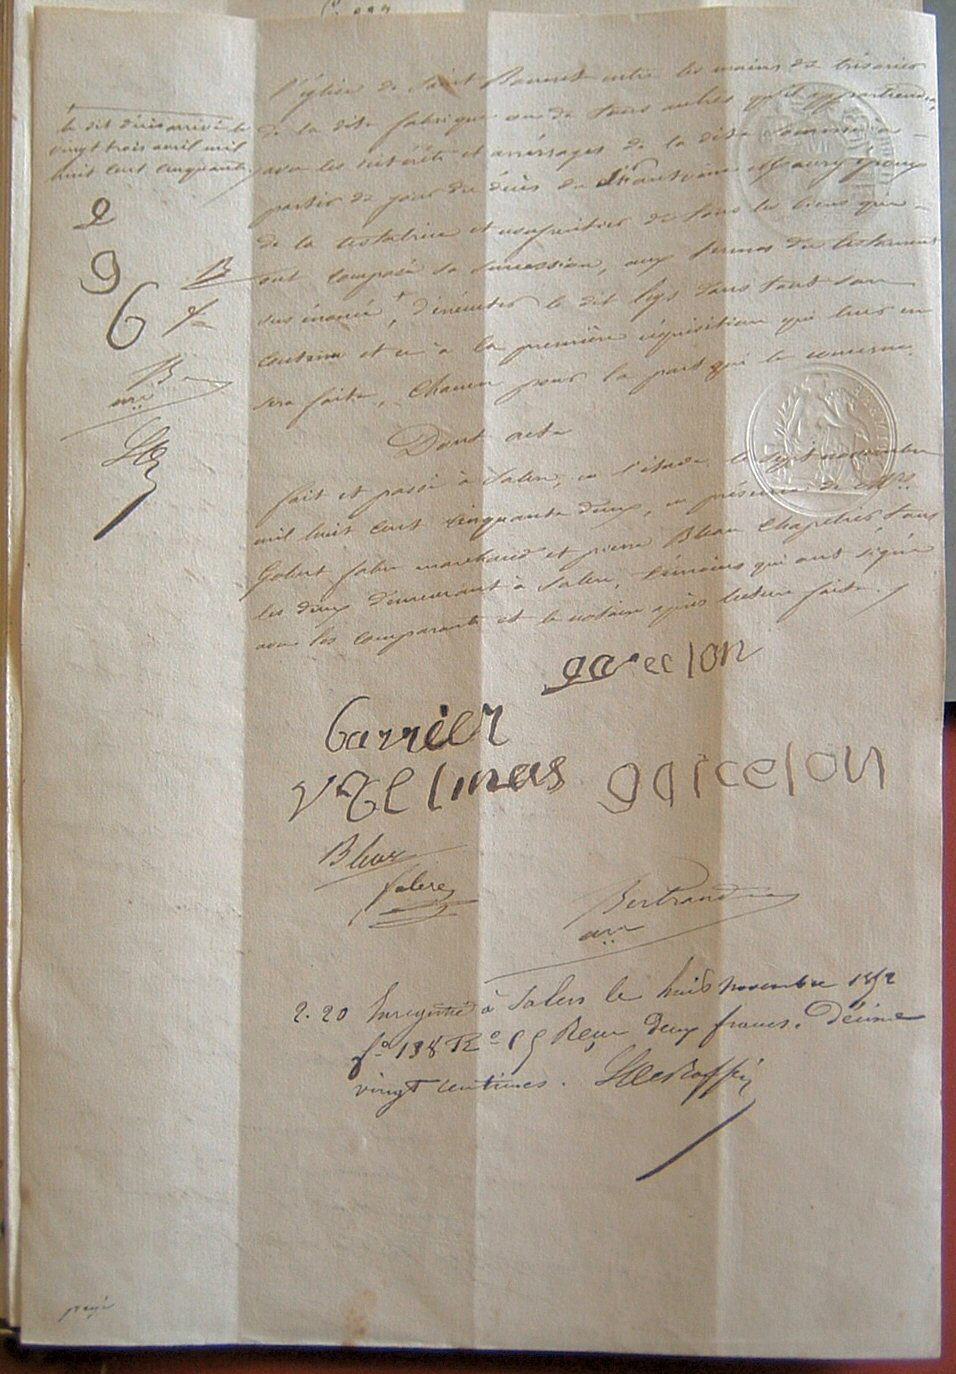 l'église de Saint Bonnet entre les mains du trésorier
de la dite fabrique ou de tous autres qu'il appartiendra,
avec les intérêts et arrérages de la dite somme à
partir du jour du décès du Sr antoine Maury époux
de la testatrice et usufruitier de tous les biens qui
ont composé sa succession, aux termes du testament
sus énoncé, d'exécuter le dit legs dans tout son
contenu et ce à la première réquisition qui leur en
sera faite, Chacun pour la part qui le concerne.
Dont acte
fait et passé à Salers, en l'étude, le sept novembre
mil huit cent cinquante deux, en présence de Mrs
Gobert fabre marchand et pierre Bleau Chapelier, tous
les deux demeurant à Salers, témoins qui ont signé
avec les comparants et le notaire après lecture faite.
le dit décès arrivé le
vingt trois avril mil
huit cent cinquante
2
9
6
garcelon
Garrier
Delmas garcelon
Bleau
fabre
Bertrand
2.20 Enregistré à Salers le huit novembre 1852
fo 138 Ro Reçu deux francs. Décime
vingt centimes.
payé